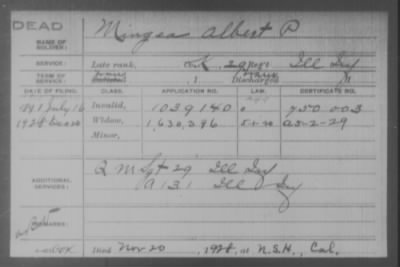 DEAD
NAME OF SOLDIER: Mingea Albert P
SERVICE: Late rank, K, 29 Ill Inf
TERM OF SERVICE: Enlisted , 1 Discharged , 1
DATE OF FILING. CLASS. APPLICATION NO. LAW. CERTIFICATE NO.
July 16 Invalid, 1039140 750003
1928 Widow, 1,630,396 5-1-20 A5-2-29
Minor,
ADDITIONAL SERVICES: Q M Sgt 29 Ill Inf
A 131 Ill Inf
REMARKS:
Died Nov 20, 1928, at N.S.H., Cal.